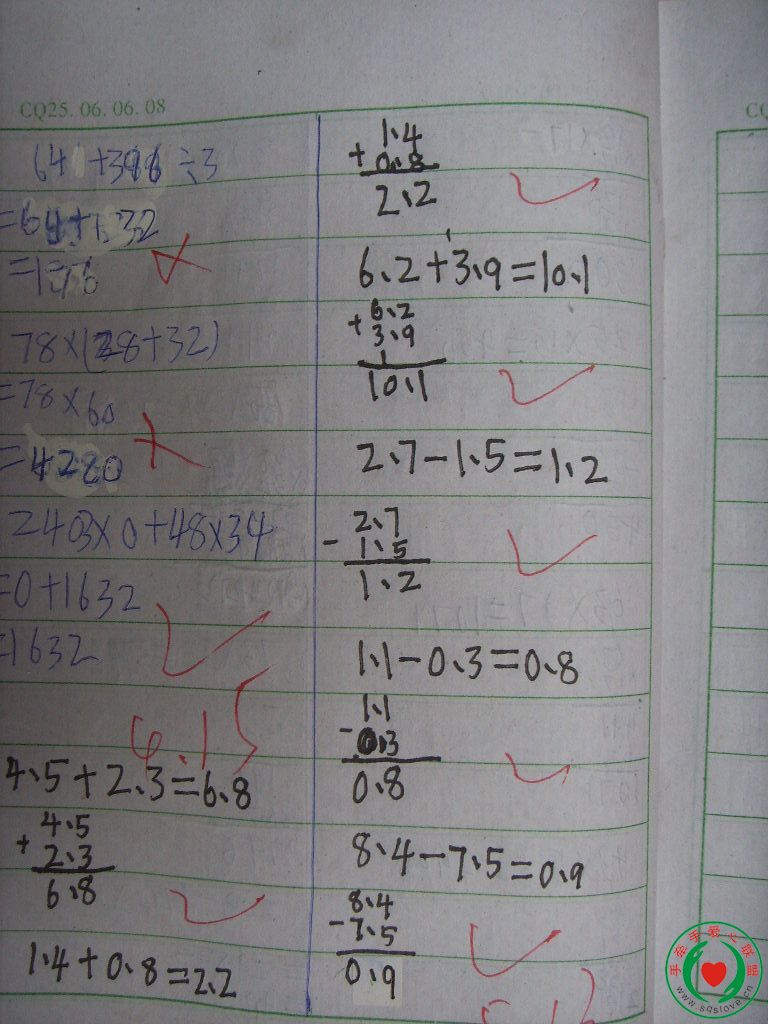 CQ25.06.06.08
78×(28+32)
=78×60
=4280
2403×0+48×34
=0+1632
=1632
6.15
4.5+2.3=6.8
4.5
+2.3
6.8
1.4+0.8=2.2
1.4
+0.8
2.2
6.2+3.9=10.1
6.2
+3.9
1
10.1
2.7-1.5=1.2
2.7
-1.5
1.2
1.1-0.3=0.8
1.1
-0.3
0.8
8.4-7.5=0.9
8.4
-7.5
0.9
CQ
手牵手爱心联盟
www.sqslove.cn